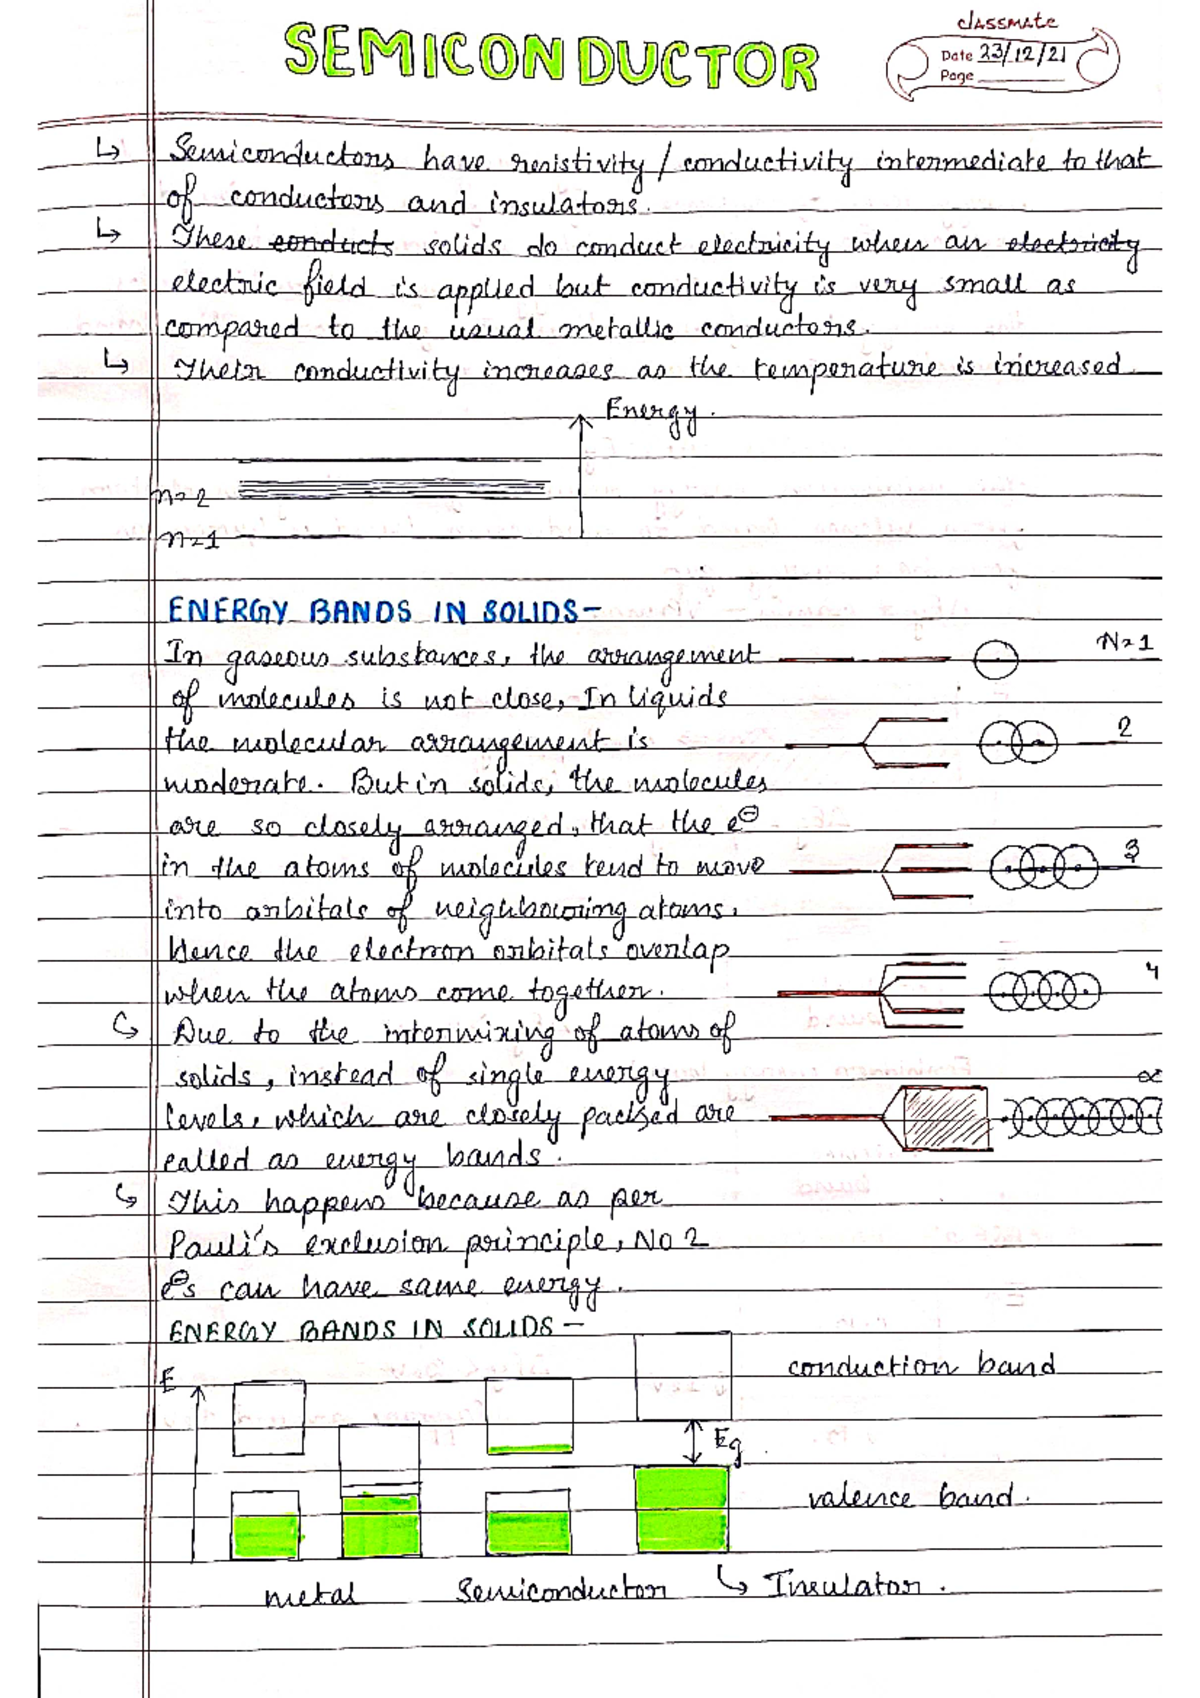 SEMICONDUCTOR
classmate
Date 23/12/21
Page
↳ Semiconductors have resistivity / conductivity intermediate to that
of conductors and insulators.
↳ These conducts solids do conduct electricity when an electricity
electric field is applied but conductivity is very small as
compared to the usual metallic conductors.
↳ Their conductivity increases as the temperature is increased
Energy.
n=2
n=1
ENERGY BANDS IN SOLIDS-
In gaseous substances, the arrangement
N=1
of molecules is not close, In liquids
the molecular arrangement is
2
moderate. But in solids, the molecules
are so closely arranged, that the e⊖
in the atoms of molecules tend to move
3
into orbitals of neighbouring atoms.
Hence the electron orbitals overlap
when the atoms come together.
4
↳ Due to the intermixing of atoms of
solids, instead of single energy
levels, which are closely packed are
∝
called as energy bands.
↳ This happens because as per
Pauli's exclusion principle, No 2
es can have same energy.
ENERGY BANDS IN SOLIDS-
conduction band
E
Eg
valence band.
metal
Semiconductor
↳ Insulator.